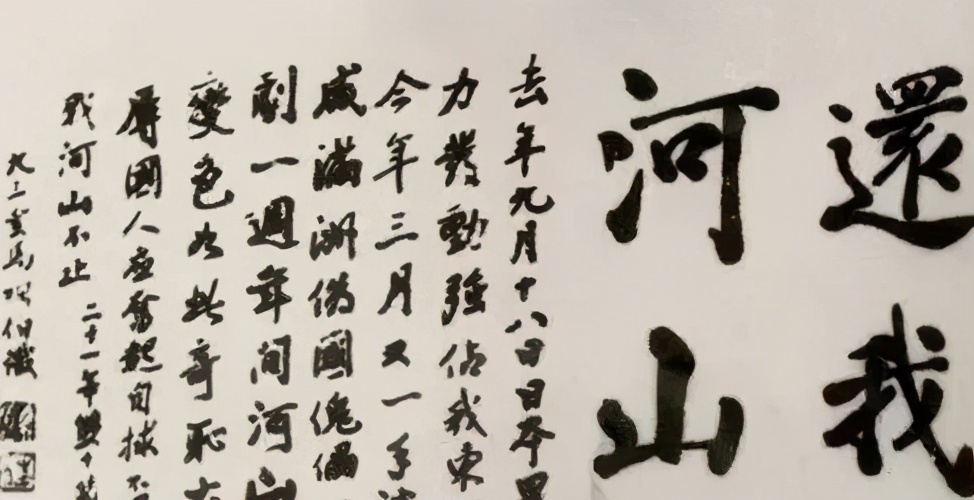 還我
河山
去年九月十八日日本
力發動強佔我東
今年三月又一手
成滿洲偽國傀儡
劇一週年間河山
變色如此奇恥大
辱國人應奮起自救不
我河山不止 二十一年雙十
九二叟馬相伯